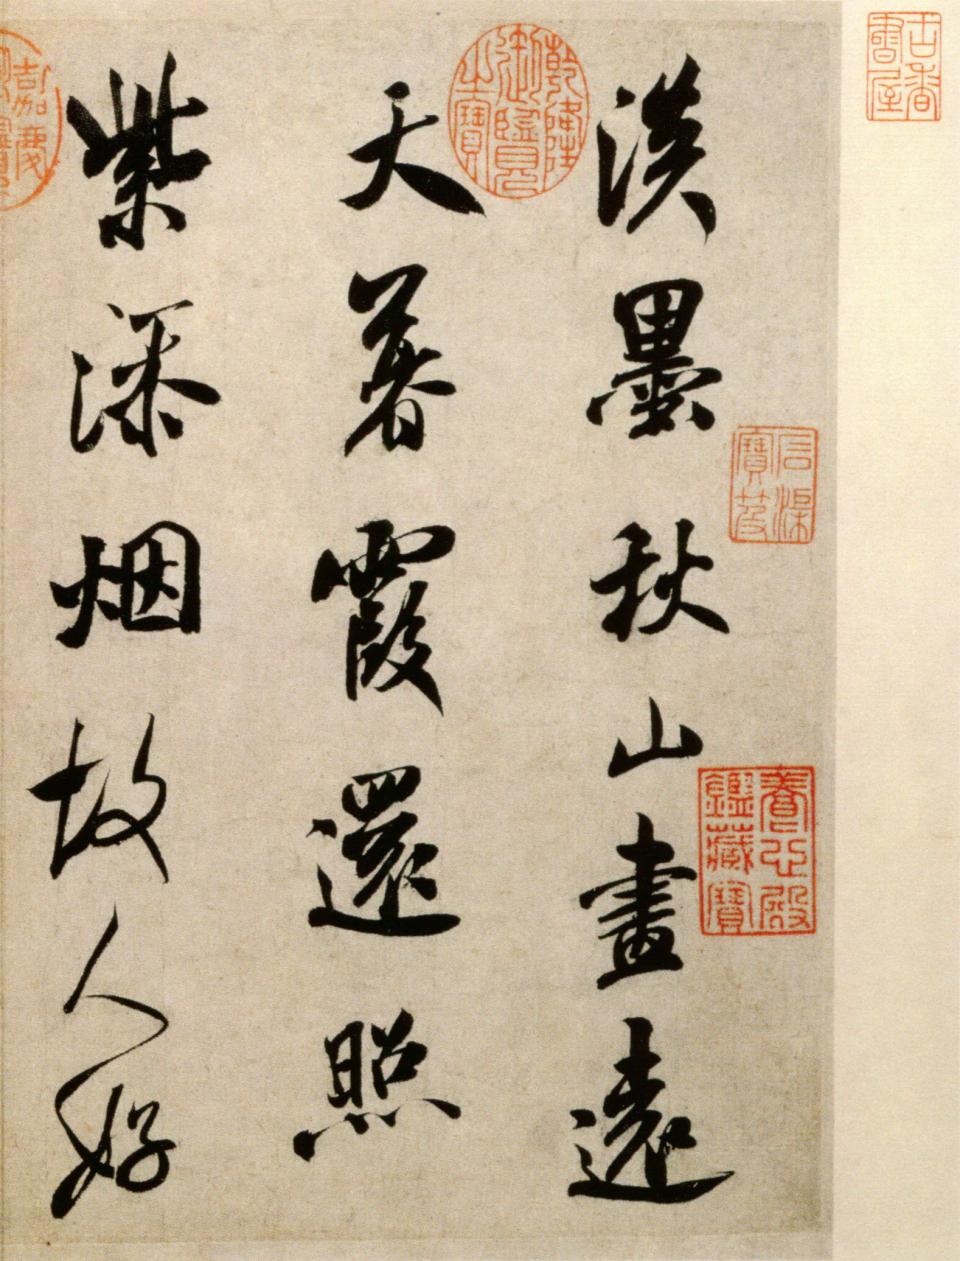 淡墨秋山畫遠
天暮霞還照
紫添烟故人好
古香書屋
信渠寶笈
養心殿鑑藏寶
乾隆御覽之寶
嘉慶